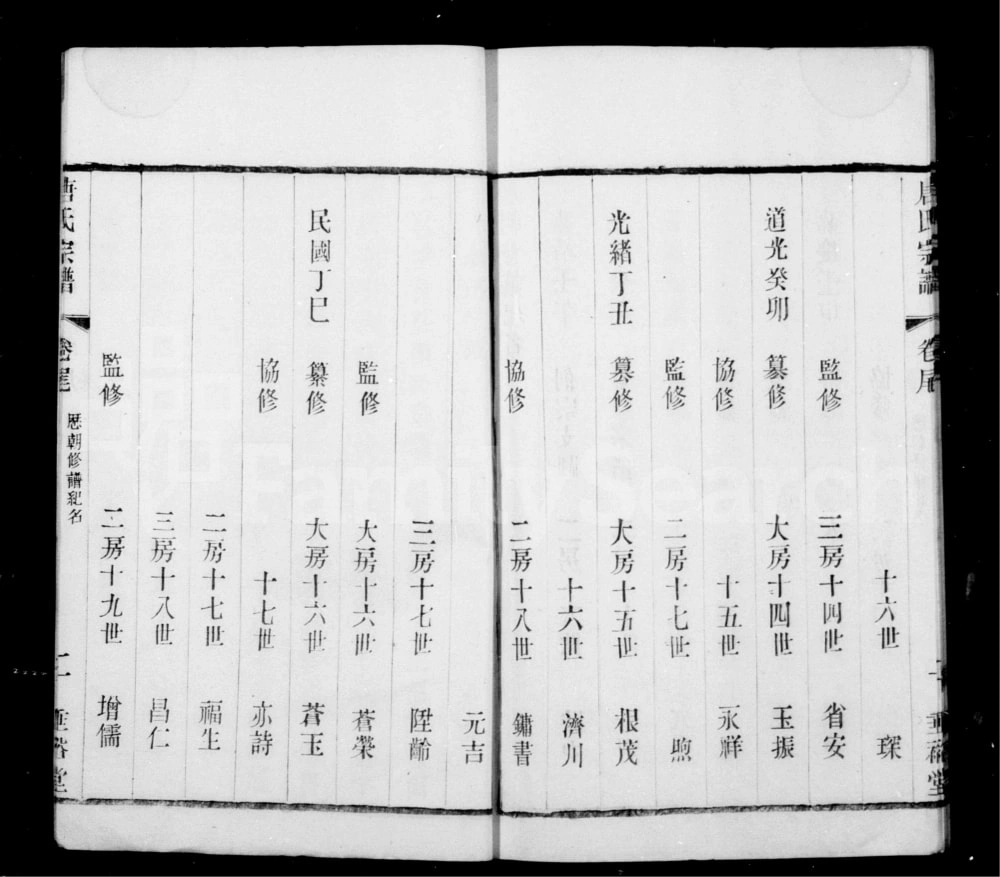 唐氏宗譜 卷尾
十六世 琛
監修 三房十四世 省安
道光癸卯 纂修 大房十四世 玉振
協修 十五世 永祥
監修 二房十七世 煦
光緒丁丑 纂修 大房十五世 根茂
十六世 濟川
協修 二房十八世 鏞書
元吉
三房十七世 陞齡
監修 大房十六世 蒼榮
民國丁巳 纂修 大房十六世 蒼玉
協修 十七世 亦詩
二房十七世 福生
三房十八世 昌仁
監修 二房十九世 增儒
唐氏宗譜 卷尾 歷朝修譜紀名 堂